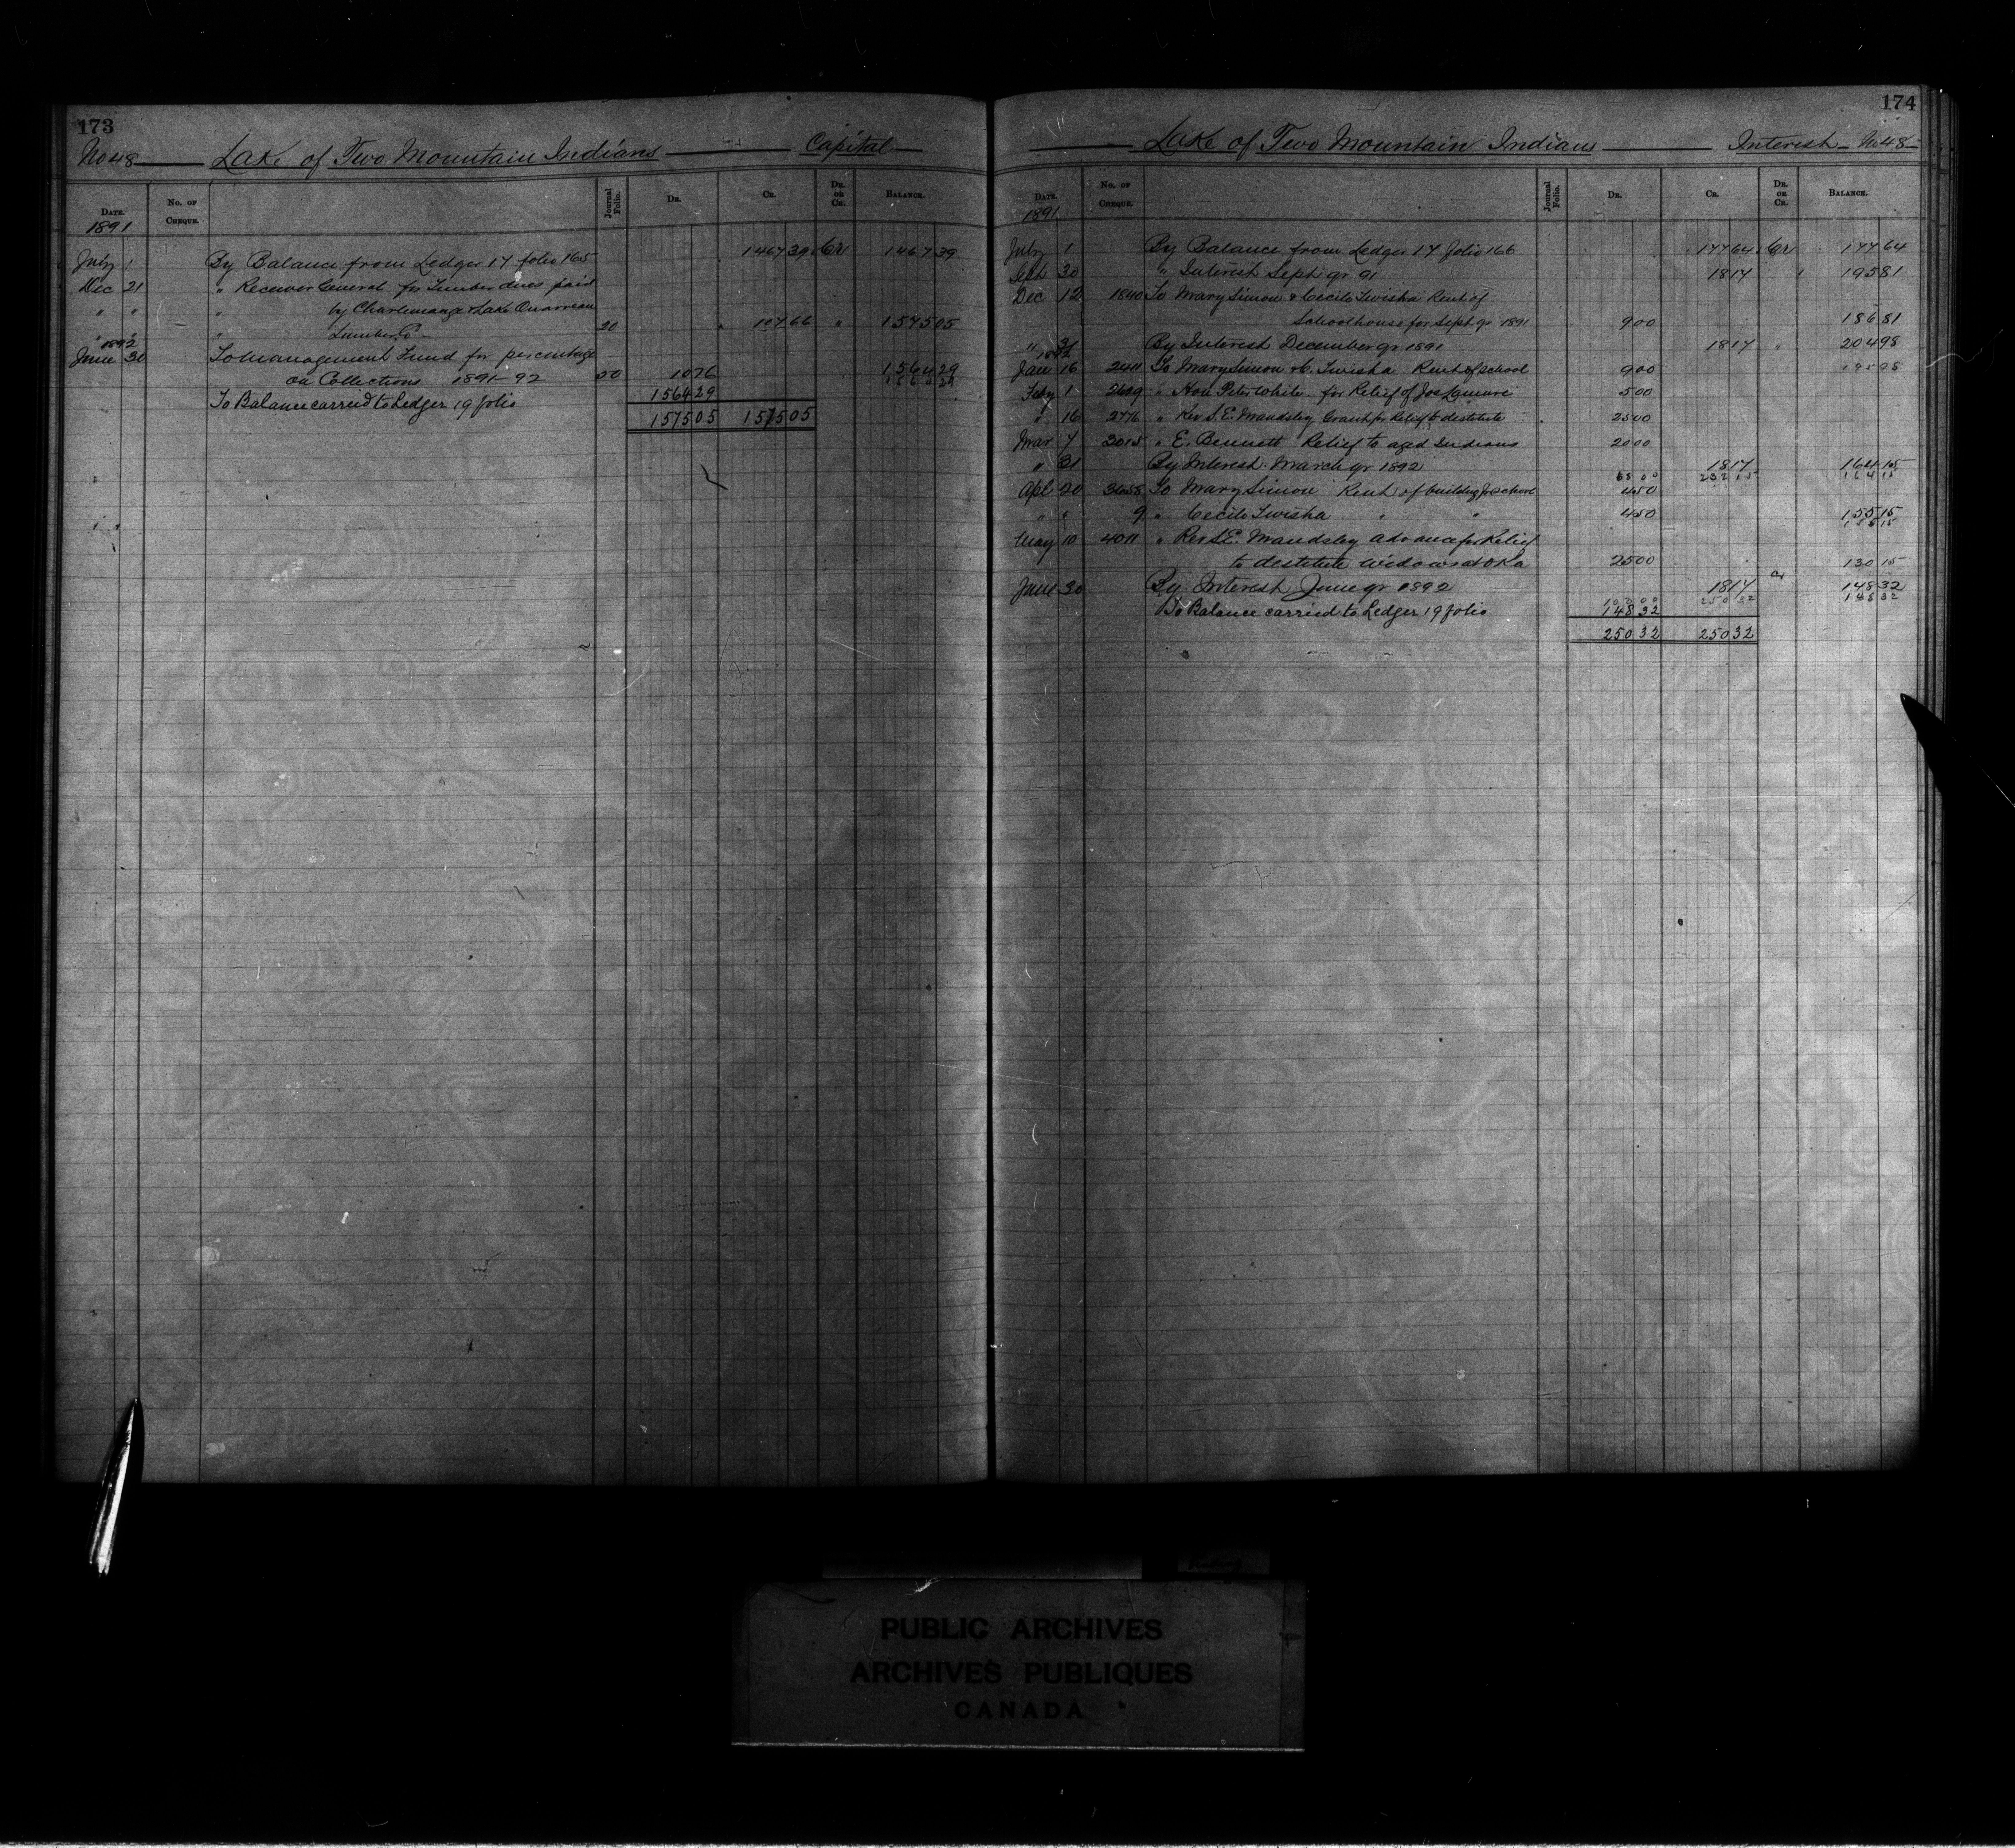 173
No 48 Lake of Two Mountain Indians Capital
DATE. No. OF CHEQUE. Journal Folio. DR. CR. DR. OR CR. BALANCE.
1891
July 1 By Balance from Ledger 17 folio 165 1467 39 Cr 1467 39
Dec 21 " Receiver General for Timber dues paid
" " " by Charlemange & Lake Ouarreau
" " Lumber Co. 20 107 66 " 1575 05
1892
June 30 To Management Fund for percentage
on Collections 1891-92 20 10 76 1564 29
To Balance carried to Ledger 19 folio 1564 29
1575 05 1575 05
174
Lake of Two Mountain Indians Interest No 48
DATE. No. OF CHEQUE. Journal Folio. DR. CR. DR. OR CR. BALANCE.
1891
July 1 By Balance from Ledger 17 folio 166 177 64 Cr 177 64
Sept 30 " Interest Sept qr 91 18 17 " 195 81
Dec 12 1840 To Mary Simon & Cecile Twisha Rent of
Schoolhouse for Sept qr 1891 9 00 186 81
" 31 By Interest December qr 1891 18 17 " 204 98
1892
Jan 16 2411 To Mary Simon & C. Twisha Rent of school 9 00 195 98
Feby 1 2629 " Hon Peter White for Relief of Jos 5 00
" 16 2776 " Rev S.E. Maudsley Grant for Relief to destitute 25 00
Mar 7 3015 " E. Bennett Relief to aged Indians 20 00
" 31 By Interest March qr 1892 18 17 164 15
68 00 232 15 164 15
Apl 20 3658 To Mary Simon Rent of building for school 4 50
" " 9 " Cecile Twisha " " 4 50 155 15
155 15
May 10 4011 " Rev S.E. Maudsley advance for Relief
to destitute widows at Oka 25 00 130 15
June 30 By Interest June qr 1892 18 17 Cr 148 32
102 00 250 32 148 32
To Balance carried to Ledger 19 folio 148 32
250 32 250 32
PUBLIC ARCHIVES
ARCHIVES PUBLIQUES
CANADA